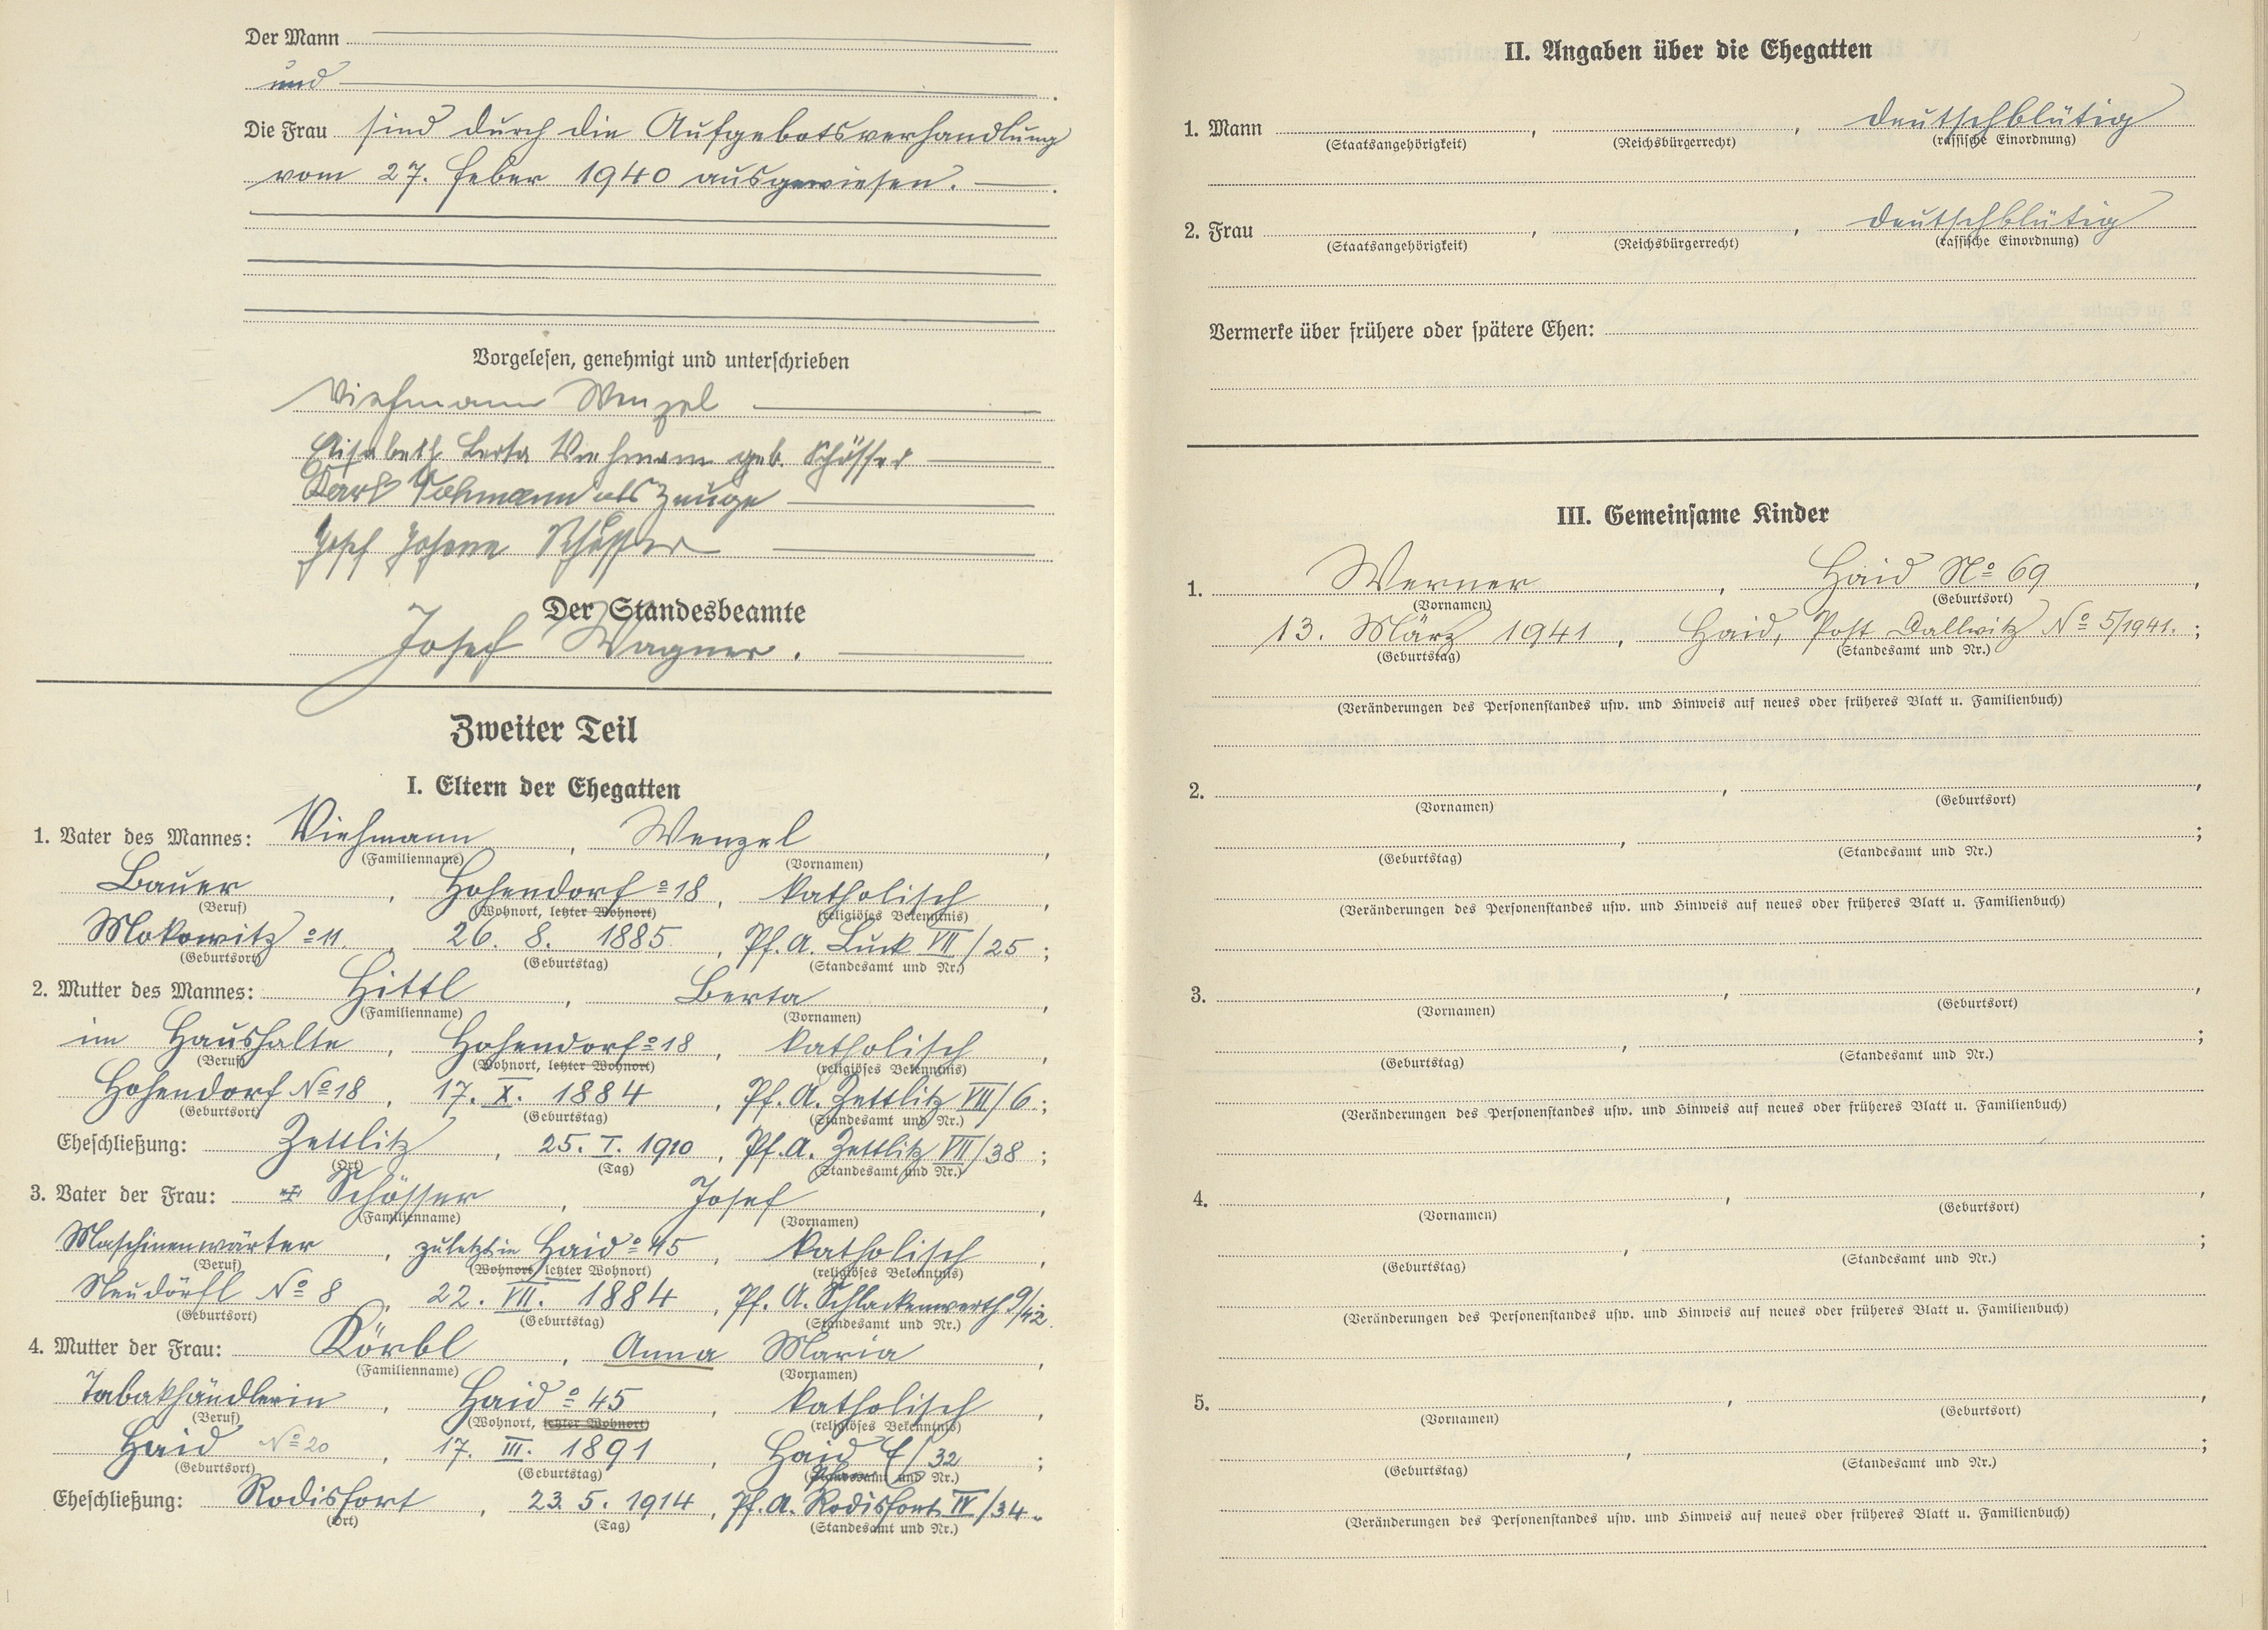 Der Mann
und
Die Frau sind durch die Aufgebotsverhandlung
vom 27. Feber 1940 ausgewiesen.
Vorgelesen, genehmigt und unterschrieben
Viehmann Wenzel
Elisabeth Berta Viehmann geb. Schösser
Karl als Zeuge
Josef Johann
Der Standesbeamte
Josef Wagner.
Zweiter Teil
I. Eltern der Ehegatten
1. Vater des Mannes: Viehmann, Wenzel,
(Familienname) (Vornamen)
Bauer, Hohendorf № 18, katholisch,
(Beruf) (Wohnort, letzter Wohnort) (religiöses Bekenntnis)
Mokowitz № 11, 26. 8. 1885, Pf. A. Luck VII/25;
(Geburtsort) (Geburtstag) (Standesamt und Nr.)
2. Mutter des Mannes: Hittl, Berta,
(Familienname) (Vornamen)
im Haushalte, Hohendorf № 18, katholisch,
(Beruf) (Wohnort, letzter Wohnort) (religiöses Bekenntnis)
Hohendorf № 18, 17. X. 1884, Pf. A. Zettlitz VII/6;
(Geburtsort) (Geburtstag) (Standesamt und Nr.)
Eheschließung: Zettlitz, 25. I. 1910, Pf. A. Zettlitz VII/38;
(Ort) (Tag) (Standesamt und Nr.)
3. Vater der Frau: Schösser, Josef,
(Familienname) (Vornamen)
Maschinenwärter, zuletzt in Haid № 45, katholisch,
(Beruf) (Wohnort, letzter Wohnort) (religiöses Bekenntnis)
Neudörfl № 8, 22. VII. 1884, Pf. A. Schlackenwerth 9/42.
(Geburtsort) (Geburtstag) (Standesamt und Nr.)
4. Mutter der Frau: Körbl, Anna Maria,
(Familienname) (Vornamen)
Tabakhändlerin, Haid № 45, katholisch,
(Beruf) (Wohnort, letzter Wohnort) (religiöses Bekenntnis)
Haid № 20, 17. III. 1891, Haid /32;
(Geburtsort) (Geburtstag) (Standesamt und Nr.)
Eheschließung: Rodisfort, 23. 5. 1914, Pf. A. Rodisfort IV/34.
(Ort) (Tag) (Standesamt und Nr.)
II. Angaben über die Ehegatten
1. Mann , , deutschblütig
(Staatsangehörigkeit) (Reichsbürgerrecht) (rassische Einordnung)
2. Frau , , deutschblütig
(Staatsangehörigkeit) (Reichsbürgerrecht) (rassische Einordnung)
Vermerke über frühere oder spätere Ehen:
III. Gemeinsame Kinder
1. Werner, Haid № 69,
(Vornamen) (Geburtsort)
13. März 1941, Haid, Post Dallwitz № 5/1941.;
(Geburtstag) (Standesamt und Nr.)
(Veränderungen des Personenstandes usw. und Hinweis auf neues oder früheres Blatt u. Familienbuch)
2. , ,
(Vornamen) (Geburtsort)
, ;
(Geburtstag) (Standesamt und Nr.)
(Veränderungen des Personenstandes usw. und Hinweis auf neues oder früheres Blatt u. Familienbuch)
3. , ,
(Vornamen) (Geburtsort)
, ;
(Geburtstag) (Standesamt und Nr.)
(Veränderungen des Personenstandes usw. und Hinweis auf neues oder früheres Blatt u. Familienbuch)
4. , ,
(Vornamen) (Geburtsort)
, ;
(Geburtstag) (Standesamt und Nr.)
(Veränderungen des Personenstandes usw. und Hinweis auf neues oder früheres Blatt u. Familienbuch)
5. , ,
(Vornamen) (Geburtsort)
, ;
(Geburtstag) (Standesamt und Nr.)
(Veränderungen des Personenstandes usw. und Hinweis auf neues oder früheres Blatt u. Familienbuch)